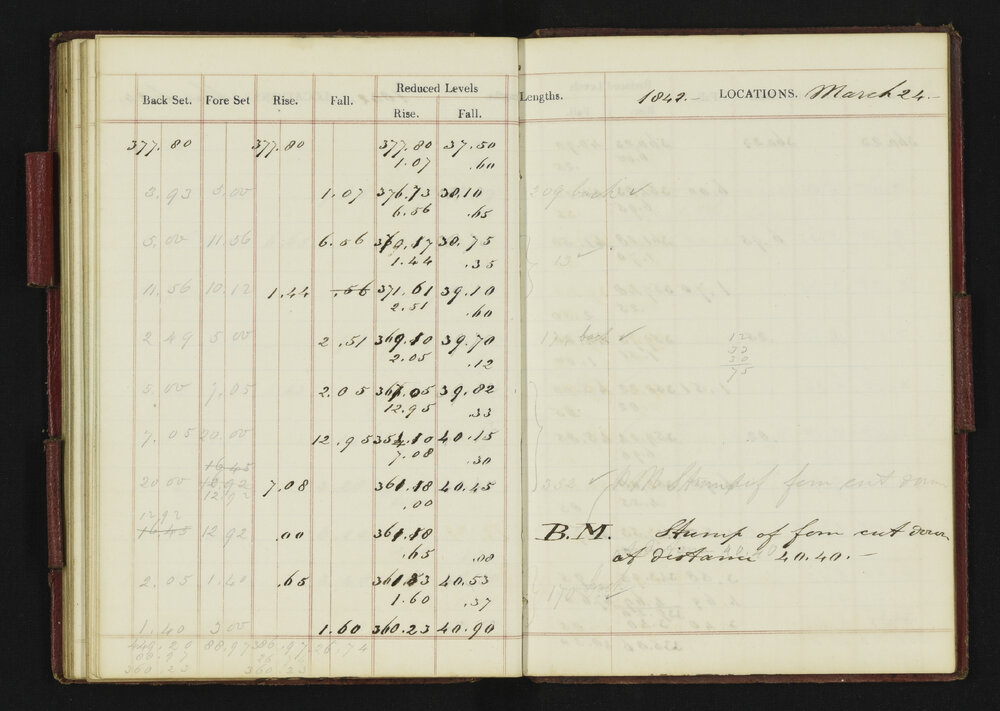 Reduced Levels
Back Set. Fore Set Rise. Fall. Rise. Fall. Lengths. 1842.- LOCATIONS. March 24.-
377.80 377.80 377.80 37.50
1.07 .60
3.93 5.00 1.07 376.73 38.10 209 back
6.56 .65
5.00 11.56 6.56 370.17 38.75
1.44 .35
11.56 10.12 1.44 .56 371.61 39.10
2.51 .60
2.49 5.00 2.51 369.10 39.70
2.05 .12
5.00 7.05 2.05 367.05 39.82
12.95 .33
7.05 20.00 12.95 354.10 40.15
7.08 .30
16.45
20.00 12.92 7.08 361.18 40.45
.00
12.92
16.45 12.92 .00 361.18 B.M. Stump of fern cut down
.65 .08 at distance 40.40.-
2.05 1.40 .65 361.83 40.53
1.60 .37
1.40 3.00 1.60 360.23 40.90
449.20 88.97 386.97 26.74
88.97 26.74
360.23 360.23